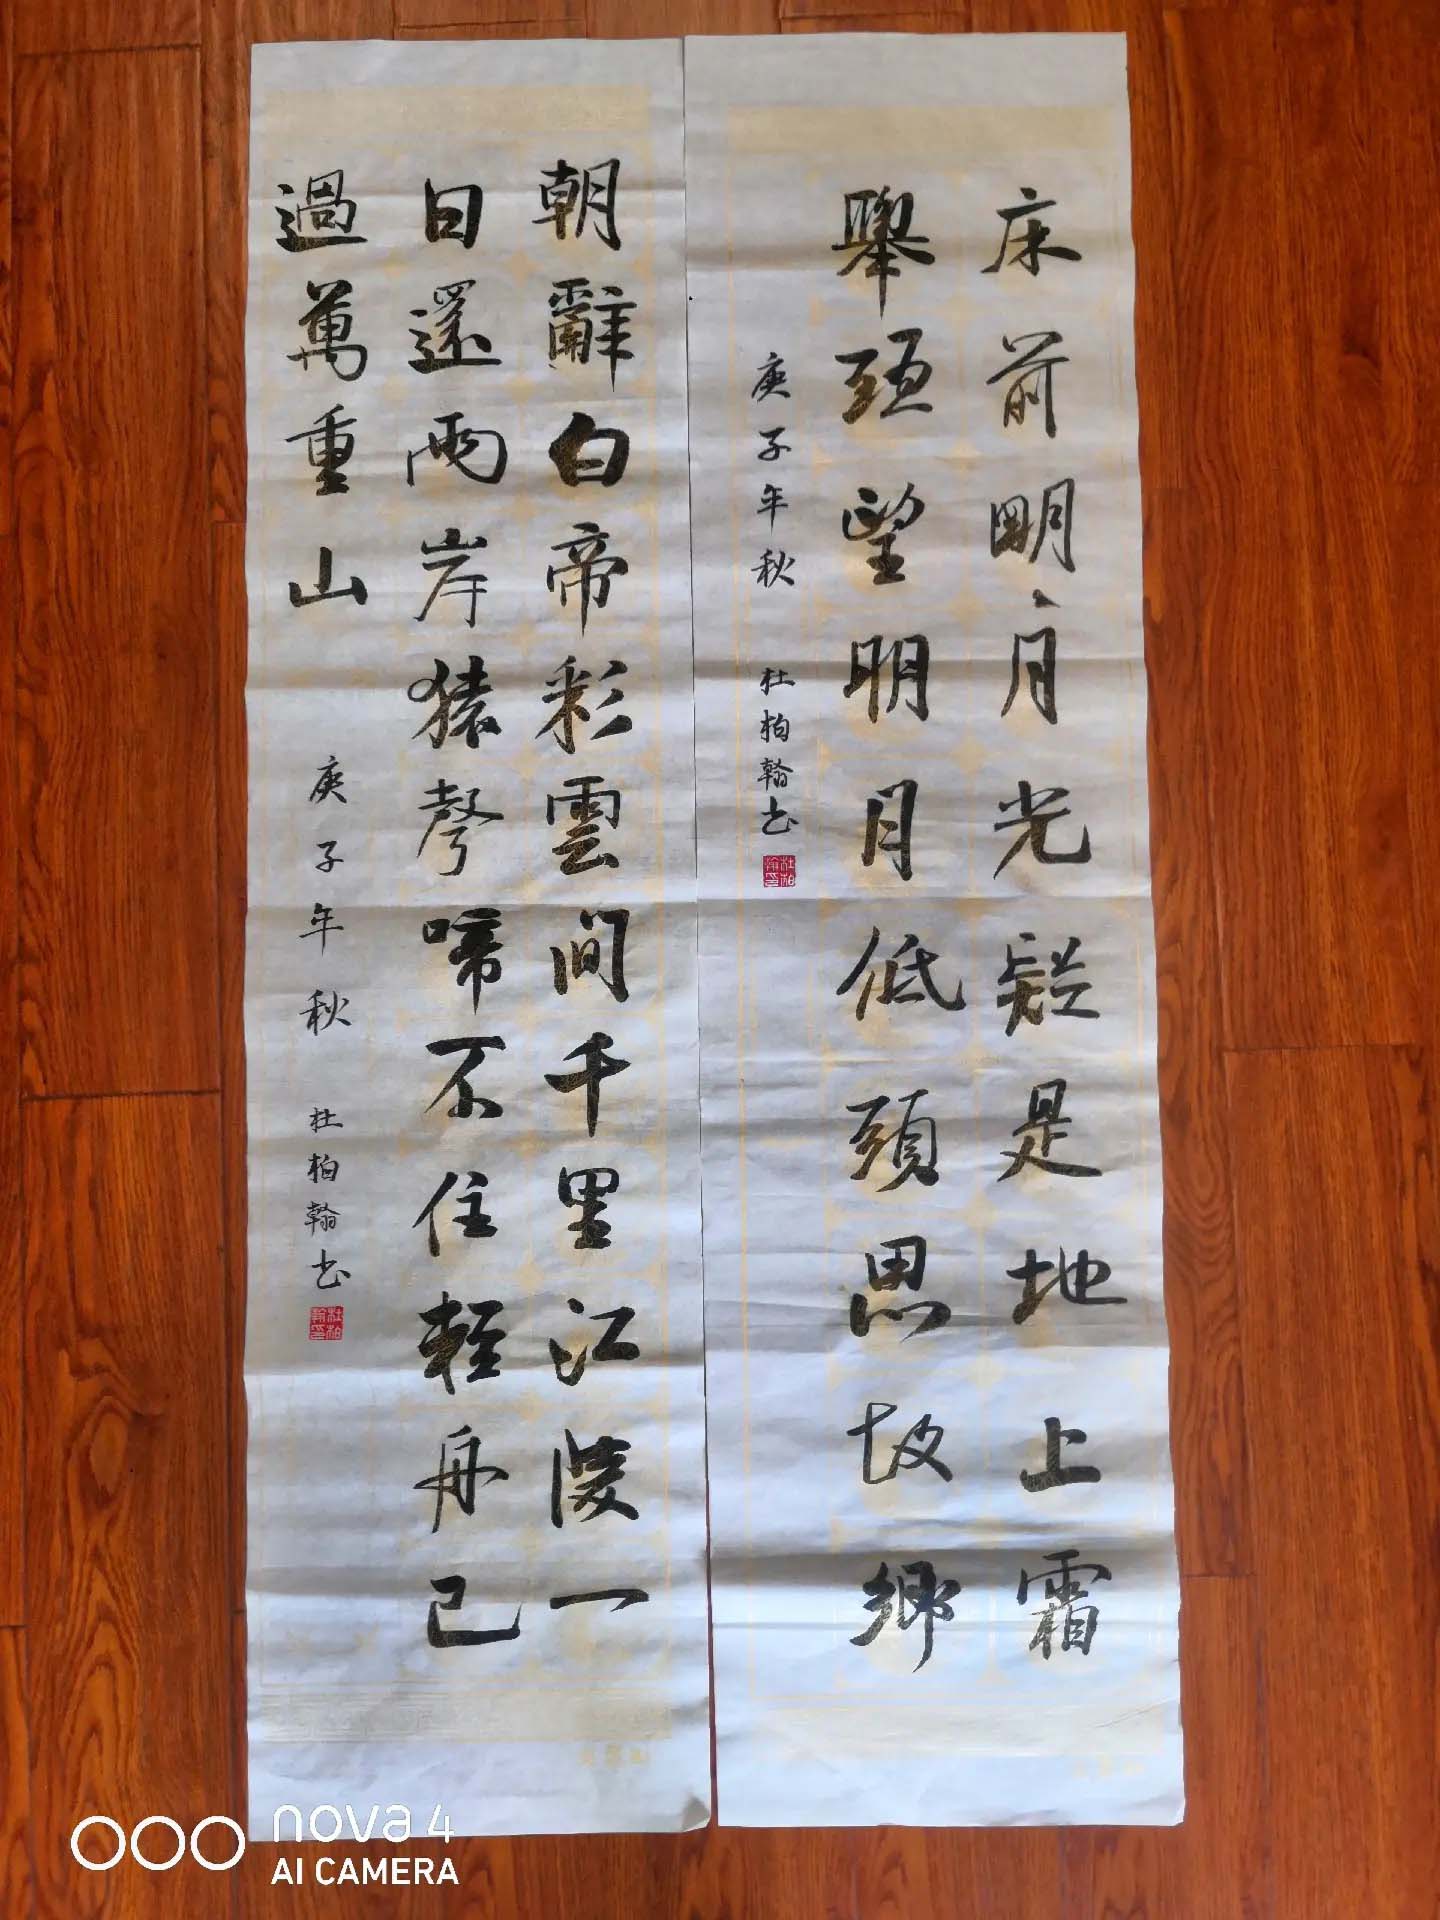 床前明月光疑是地上霜
舉頭望明月低頭思故鄉
庚子年秋 杜柏翰书
杜柏翰印
朝辭白帝彩雲间千里江陵一
日還兩岸猿聲啼不住輕舟已
過萬重山
庚子年秋 杜柏翰书
杜柏翰印
nova 4
AI CAMERA